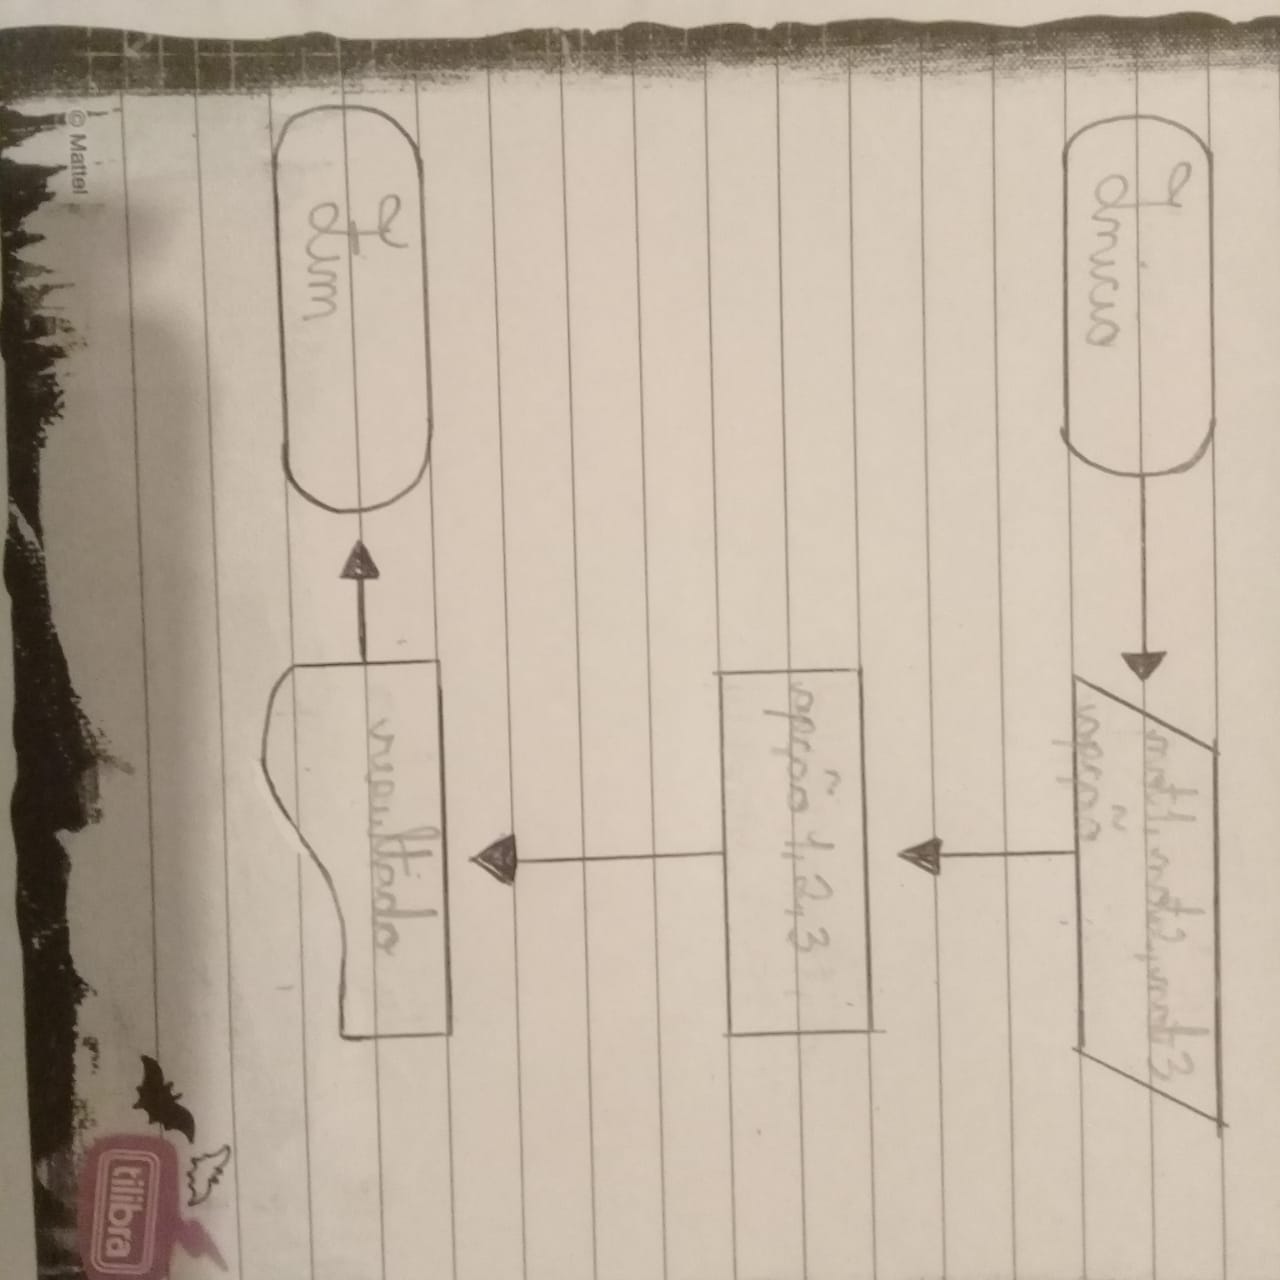 Inicio
not1, not2, not3
opção
opção 1, 2, 3
resultado
Fim
© Mattel
tilibra